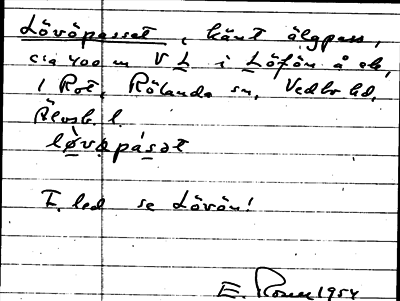 Lövöpasset, känt älgpass,
c:a 400 m V L i Löfön å ek,
1 Rot, Rölanda sn, Vedbo hd,
Älvsb. l.
løvəpásət
F. led se Lövön!
E. Rosen 1954